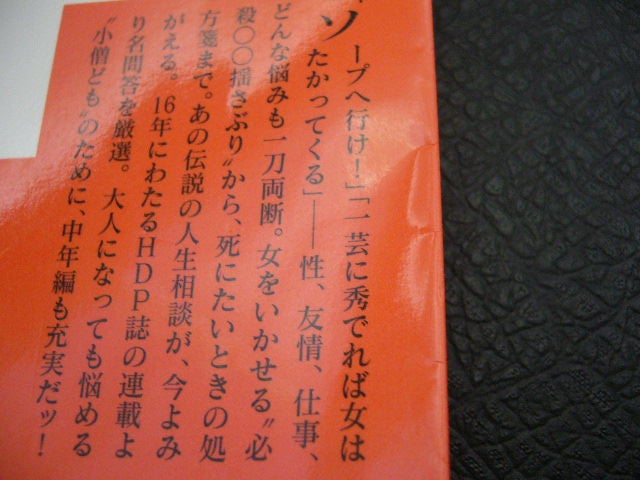 ソープへ行け！」「一芸に秀でれば女は
たかってくる」――性、友情、仕事、
どんな悩みも一刀両断。女をいかせる〝必
殺〇〇揺さぶり〟から、死にたいときの処
方箋まで。あの伝説の人生相談が、今よみ
がえる。16年にわたるHDP誌の連載よ
り名問答を厳選。大人になっても悩める
〝小僧ども〟のために、中年編も充実だッ！